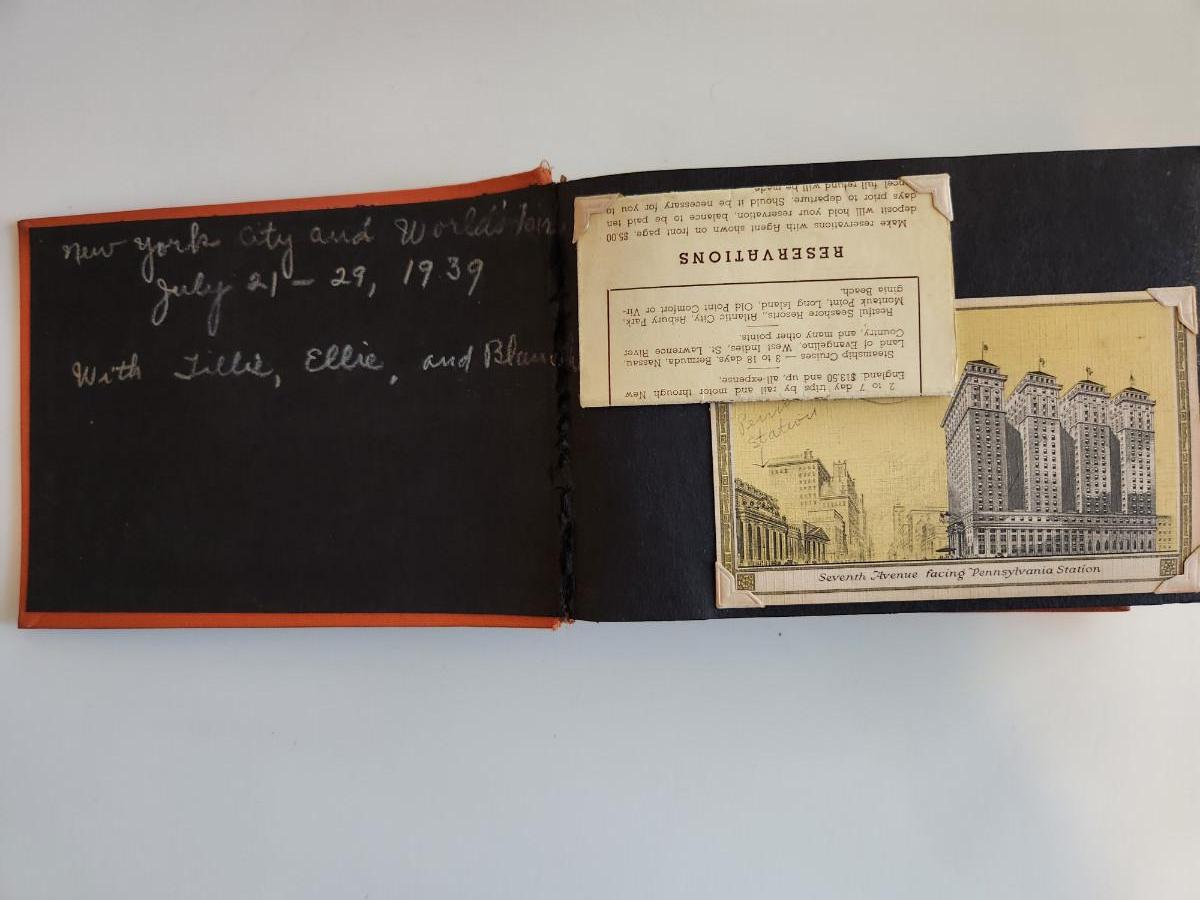 New York City and World's Fair
July 21 - 29, 1939
With Tillie, Ellie, and
2 to 7 day trips by rail and motor through New
England. $13.50 and up, all-expense.
Steamship Cruises — 3 to 18 days. Bermuda, Nassau,
Land of Evangeline, West Indies, St. Lawrence River
Country, and many other points.
Restful Seashore Resorts., Atlantic City, Asbury Park,
Montauk Point, Long Island, Old Point Comfort or Vir-
ginia Beach.
RESERVATIONS
Make reservations with Agent shown on front page. $5.00
deposit will hold your reservation, balance to be paid ten
days prior to departure. Should it be necessary for you to
cancel full refund will be made
Penn
Station
Seventh Avenue facing Pennsylvania Station